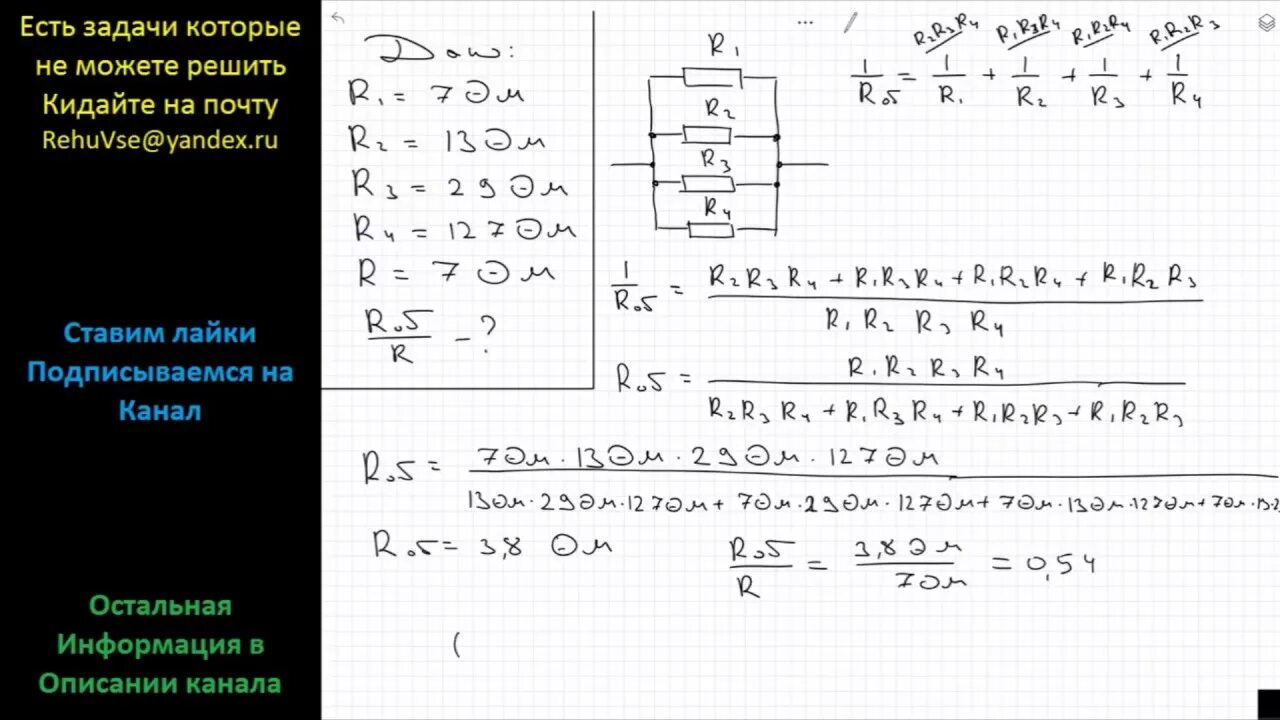 Есть задачи которые
не можете решить
Кидайте на почту
RehuVse@yandex.ru
Ставим лайки
Подписываемся на
Канал
Остальная
Информация в
Описании канала
Дано:
R₁ = 7 Ом
R₂ = 13 Ом
R₃ = 29 Ом
R₄ = 127 Ом
R = 7 Ом
Rоб/R - ?
R₁
R₂
R₃
R₄
R₂R₃R₄ R₁R₃R₄ R₁R₂R₄ R₁R₂R₃
1/Rоб = 1/R₁ + 1/R₂ + 1/R₃ + 1/R₄
1/Rоб = (R₂R₃R₄ + R₁R₃R₄ + R₁R₂R₄ + R₁R₂R₃)/(R₁R₂R₃R₄)
Rоб = (R₁R₂R₃R₄)/(R₂R₃R₄ + R₁R₃R₄ + R₁R₂R₃ + R₁R₂R₃)
Rоб = 7 Ом · 13 Ом · 29 Ом · 127 Ом
13 Ом · 29 Ом · 127 Ом + 7 Ом · 29 Ом · 127 Ом + 7 Ом · 13 Ом · 127 Ом + 7 Ом · 13 · 2
Rоб = 3,8 Ом
Rоб/R = 3,8 Ом/7 Ом = 0,54
(